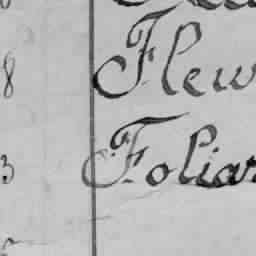 8 Flew
3 Foliar